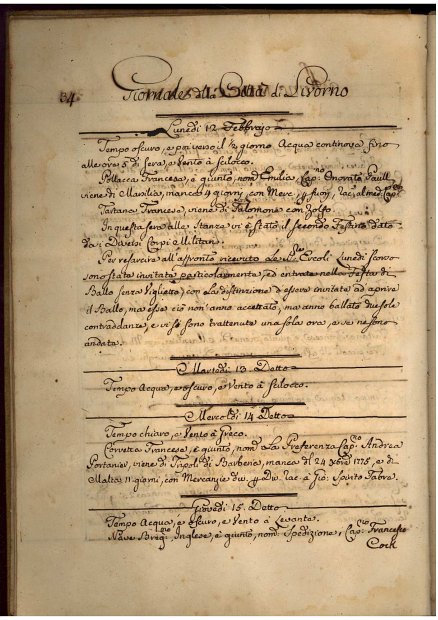 34
Giornale della Città di Livorno
Lunedì 12 Febbrajo
Tempo oscuro, e poi verso il ½ giorno Acqua continova fino
alle ore 5 di sera, e Vento à Scilocco.
Pollacca Francesa, è giunto, nom. Emilia, Cap.no Onorato Paull
viene di Marsilia, manca 4 giorni, con Merce,
Tartana Francese, viene di Talomone con Zolfo.
In questa sera alle Stanze vi è stato il secondo Festino dato
da i Diversi Corpi Militari.
Per resarcire all'affronto ricevuto le Ercoli Lunedì scorso
sono state invitate particolarmente, ed entrate nella Festa di
Ballo senza Viglietto, con la distinzione d'essere invitate ad aprire
il Ballo, ma esse ciò non anno accettato, ma anno ballato due sole
contraddanze, e vi si sono trattenute una sola ora, e se ne sono
andate.
Martedì 13 Detto
Tempo Acqua, e oscuro, e Vento à Scilocco.
Mercoledì 14 Detto
Tempo chiaro, e Vento à Greco.
Corvetta Francese, è giunto, nom. La Preferenza Cap.no Andrea
Portanier, viene di Tripoli di Barberia, manca dal 24 Xbre 1775, e di
Malta 11 giorni, con Mercanzie div. à Gio: Spirito Fabre.
Giovedì 15 Detto
Tempo Acqua, e oscuro, e Vento à Levante.
Nave Inglese, è giunto, nom. Spedizione, Cap.no Francesco
Cock